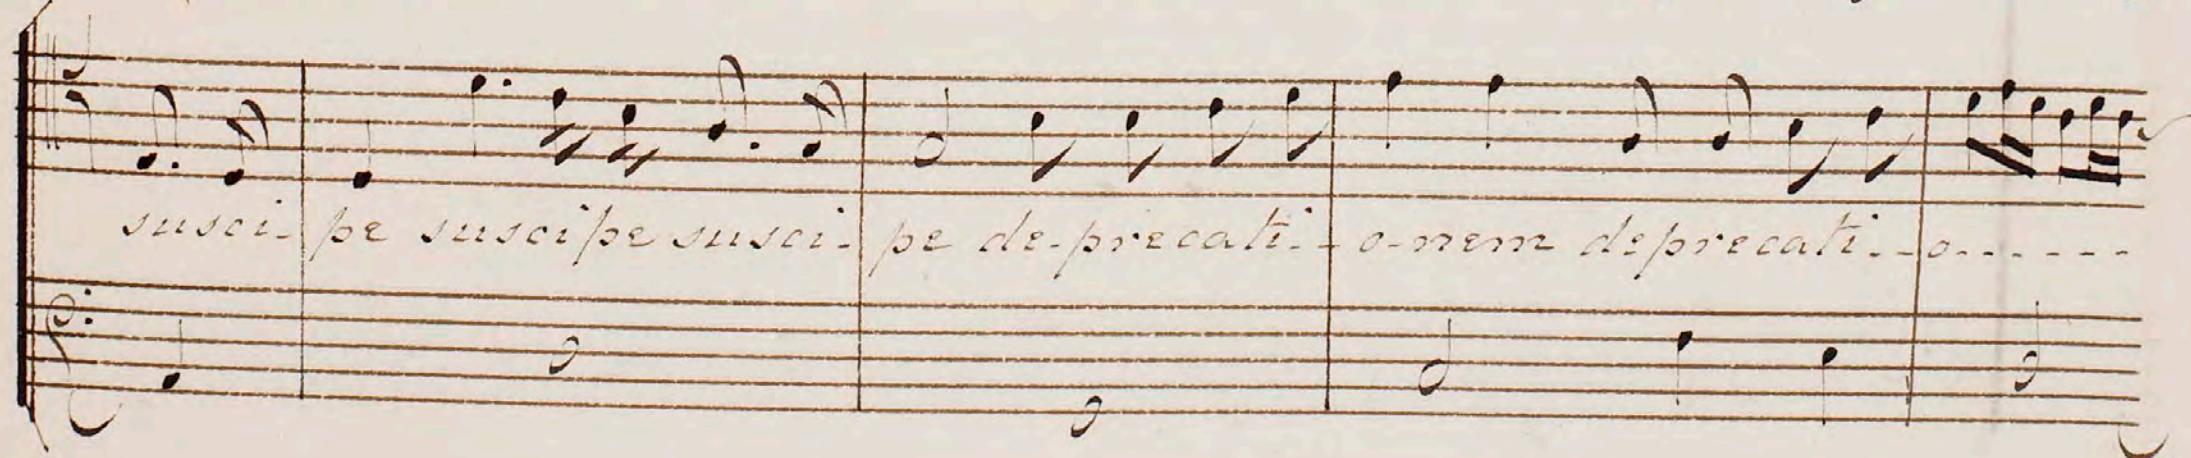 susci- pe suscipe susci- pe de-precati-- o-nem deprecati--o------